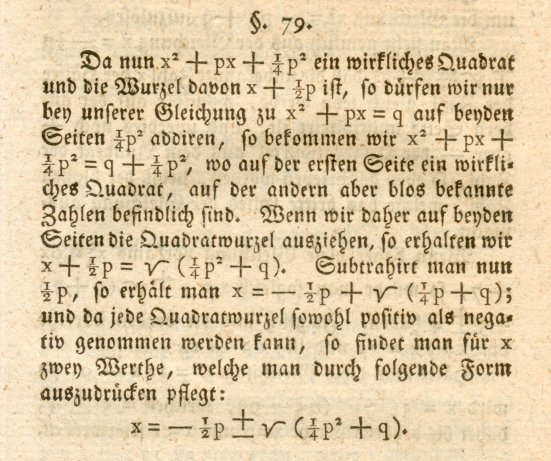 §. 79.
Da nun x² + px + ¼p² ein wirkliches Quadrat
und die Wurzel davon x + ½p ist, so dürfen wir nur
bey unserer Gleichung zu x² + px = q auf beyden
Seiten ¼p² addiren, so bekommen wir x² + px +
¼p² = q + ¼p², wo auf der ersten Seite ein wirkli-
ches Quadrat, auf der andern aber blos bekannte
Zahlen befindlich sind. Wenn wir daher auf beyden
Seiten die Quadratwurzel ausziehen, so erhalten wir
x + ½p = √ (¼p² + q). Subtrahirt man nun
½p, so erhält man x = — ½p + √ (¼p + q);
und da jede Quadratwurzel sowohl positiv als nega-
tiv genommen werden kann, so findet man für x
zwey Werthe, welche man durch folgende Form
auszudrücken pflegt:
x = — ½p ± √ (¼p² + q).